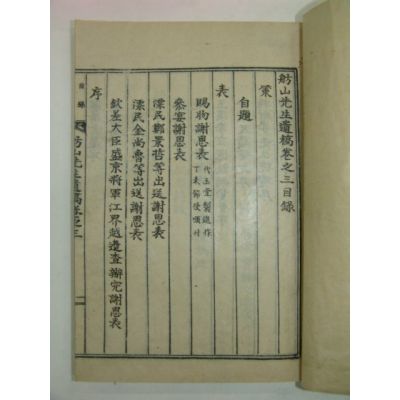 舫山先生遺稿卷之三目録
策
自題
表
賜物謝恩表 代玉堂製進作 丁未節使順付
參宴謝恩表
漂民鄭景哲等出送謝恩表
漂民金尚曹等出送謝恩表
欽差大臣盛京將軍江界越邊查辦完謝恩表
序
目錄
舫山先生遺稿卷之三
一